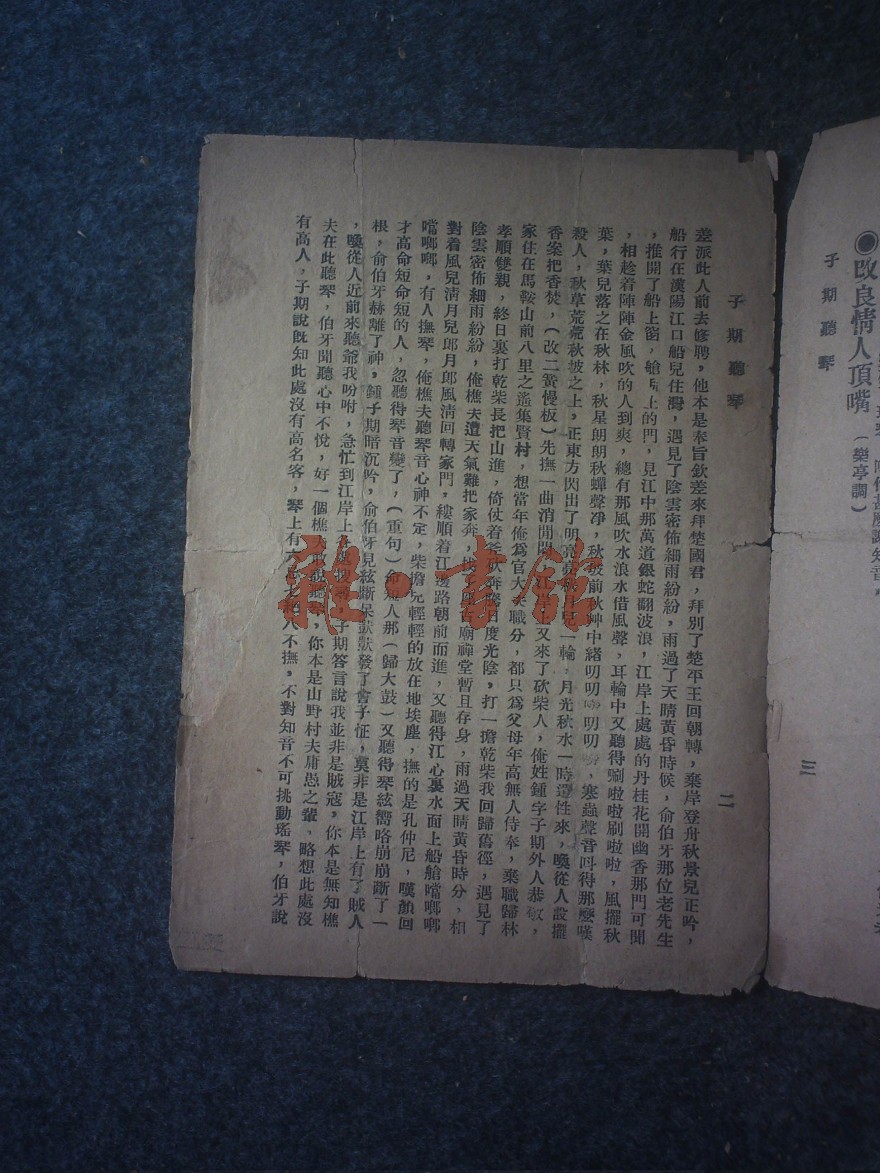 ●改良情人頂嘴（樂亭調）
子期聽琴
三
子期聽琴
二
差派此人前去修聘，他本是奉旨欽差來拜楚國君，拜別了楚平王回朝轉，棄岸登舟秋景兒正吟，
船行在漢陽江口船兒住灣，遇見了陰雲密佈細雨紛紛，雨過了天晴黃昏時候，俞伯牙那位老先生
，推開了船上窗，艙上的門，見江中那萬道銀蛇翻波浪，江岸上處處的丹桂花開幽香那門可聞
，相趁着陣陣金風吹的人到爽，總有那風吹水浪水借風聲，耳輪中又聽得唰啦啦刷啦啦，風擺秋
葉，葉兒落之在秋林，秋星朗朗秋蟬聲凈，秋坡前秋艸中緒叨叨叨叨，寒蟲聲音叫得那麽嘆
殺人，秋草荒荒秋坡之上，正東方閃出了明亮亮秋月兒一輪，月光秋水一時遣性來，喚從人設擺
香案把香焚，（改二簧慢板）先撫一曲消閒悶，江岸上又來了砍柴人，俺姓鍾字子期外人恭敬，
家住在馬鞍山前八里之遙集賢村，想當年俺爲官大夫職分，都只爲父母年高無人侍奉，棄職歸林
孝順雙親，終日裏打乾柴長把山進，倚仗着斧砍奔波日度光陰，打一擔乾柴我回歸舊徑，遇見了
陰雲密佈細雨紛紛，俺樵夫遭天氣難把家奔，廟禪堂暫且存身，雨過天晴黃昏時分，相
對着風兒清月兒郎月郎風清回轉家門，縷順着江邊路朝前而進，又聽得江心裏水面上船艙噹啷啷
噹啷啷，有人撫琴，俺樵夫聽琴音心神不定，柴擔兒輕輕的放在地埃塵，撫的是孔仲尼，嘆顏回
才高命短命短的人，忽聽得琴音變了，（重句）命短人那（歸大鼓）又聽得琴絃嚮咯崩崩斷了一
根，俞伯牙赫離了神，鍾子期暗沉吟，俞伯牙見絃斷呆獃獃發了會子怔，莫非是江岸上有了賊人
，喚從人近前來聽爺我吩咐，急忙到江岸上子期答言說我並非是賊寇，你本是無知樵
夫在此聽琴，伯牙聞聽心中不悅，好一個樵夫敢說聽琴，你本是山野村夫庸愚之輩、略想此處沒
有高人，子期說旣知此處沒有高名客，琴上有六忌七絕八不撫，不對知音不可挑動瑤琴，伯牙說